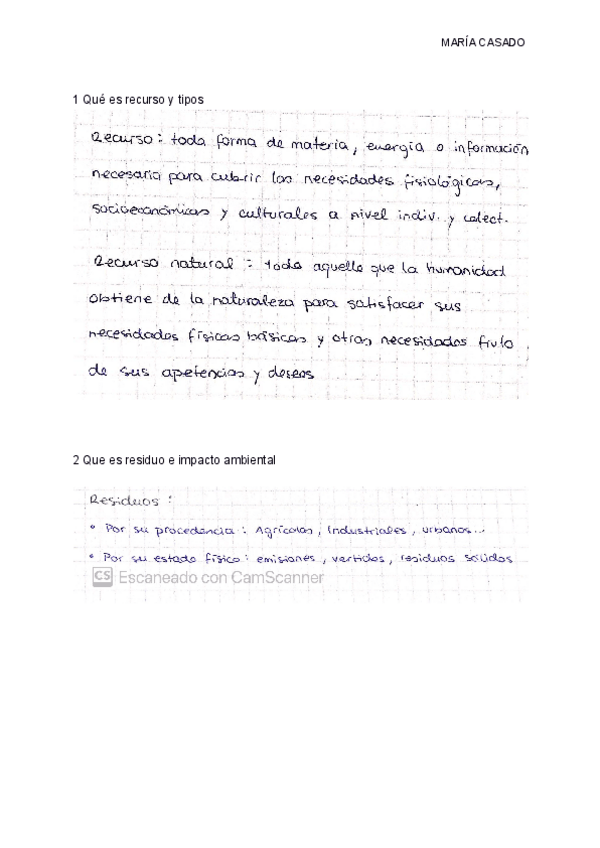 MARÍA CASADO
1 Qué es recurso y tipos
Recurso: toda forma de materia, energía o información
necesaria para cubrir las necesidades fisiológicas,
socioeconómicas y culturales a nivel indiv. y colect.
Recurso natural: todo aquello que la humanidad
obtiene de la naturaleza para satisfacer sus
necesidades físicas básicas y otras necesidades fruto
de sus apetencias y deseos
2 Que es residuo e impacto ambiental
Residuos:
• Por su procedencia: Agrícolas, Industriales, urbanos...
• Por su estado físico: emisiones, vertidos, residuos sólidos
CS Escaneado con CamScanner